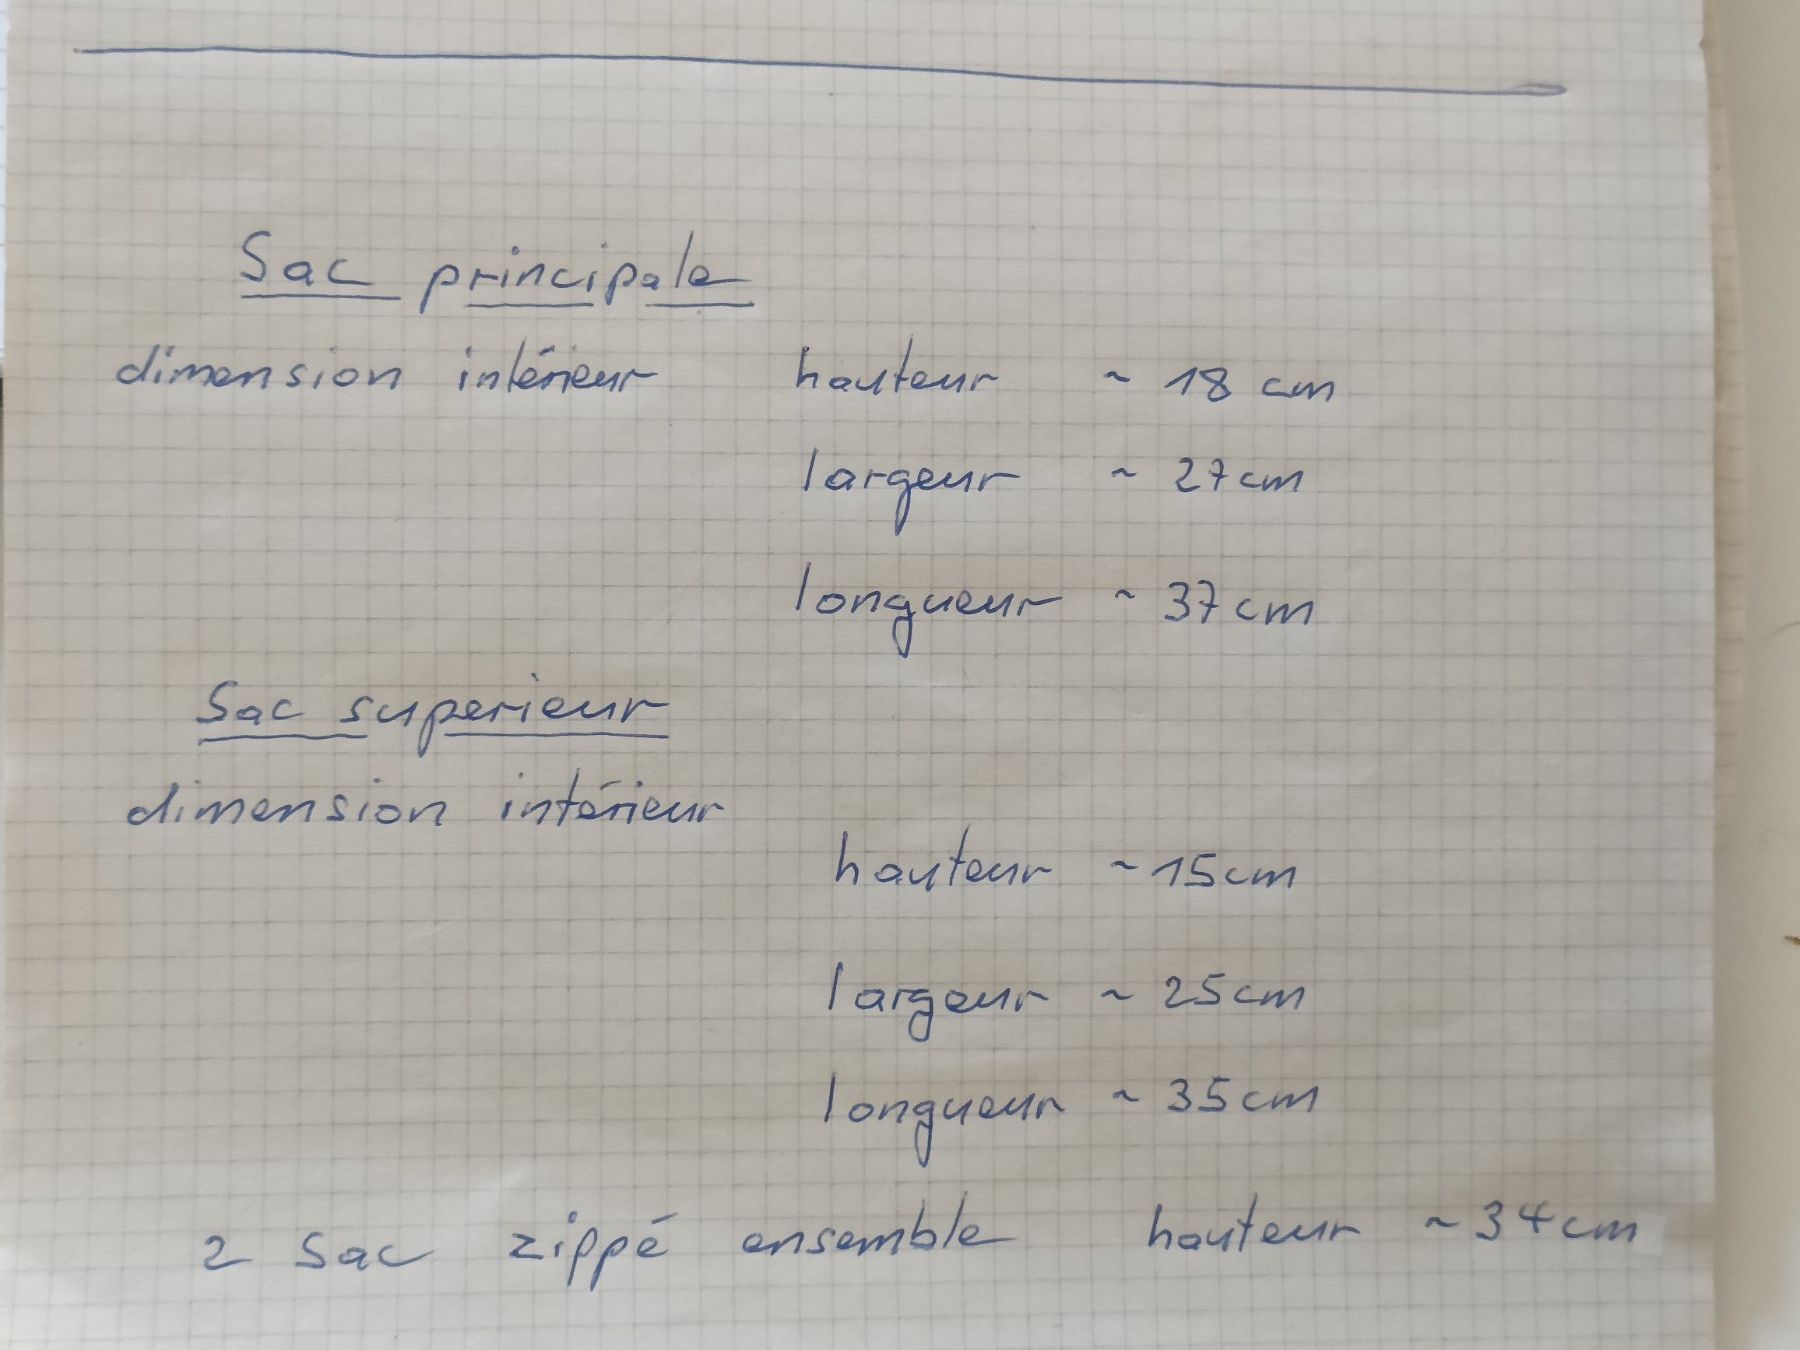 Sac principale
dimension intérieur hauteur ~ 18 cm
largeur ~ 27 cm
longueur ~ 37 cm
Sac superieur
dimension intérieur
hauteur ~ 15 cm
largeur ~ 25 cm
longueur ~ 35 cm
2 Sac zippé ensemble hauteur ~ 34 cm